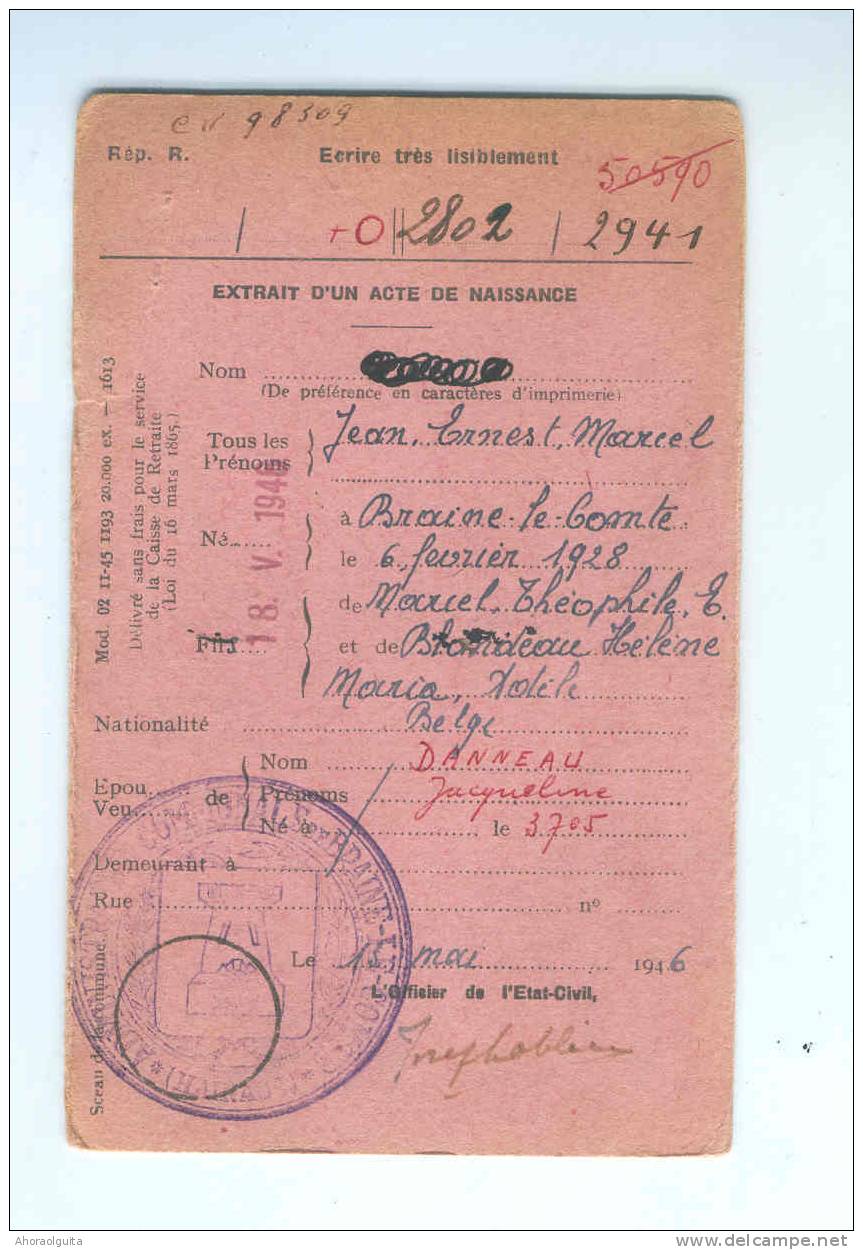 98309
Rép. R. Ecrire très lisiblement
50590
/ +0 || 2802 / 2941
EXTRAIT D'UN ACTE DE NAISSANCE
Nom
(De préférence en caractères d'imprimerie)
Tous les Prénoms } Jean, Ernest, Marcel
Né à Braine-le-Comte
le 6 février 1928
Fils de Marcel, Théophile, E.
et de Blondeau Hélène
Maria, Adèle
Nationalité Belge
Epou Veu de { Nom DANNEAU
Prénoms Jacqueline
Né à le 3705
Demeurant à
Rue nº
Le 15 mai 1946
L'Officier de l'Etat-Civil,
18. V. 1946
Mod. 02 11-45 1193 20.000 ex. — 1613
Délivré sans frais pour le service
de la Caisse de Retraite
(Loi du 16 mars 1865.)
Sceau de la commune.
BRAINE-LE-COMTE
Ahoraolguita
www.delcampe.net